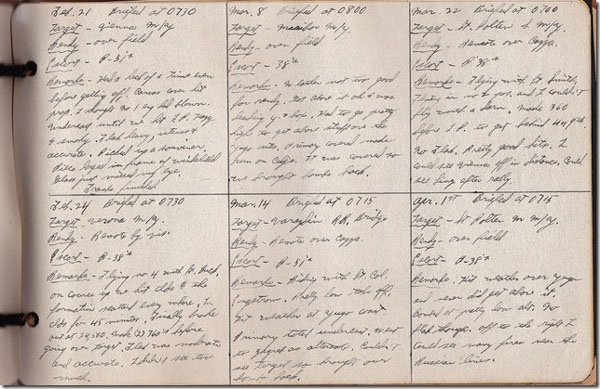 Feb. 21 Briefed at 0730
Target - Vienna M/y
Rendy - over field
Escort - P-51's
Remarks - Had a hell of a time even
before getting off. Canvas over hit
prop. I thought No 1 eng had blown.
Undercast until we hit I.P. foggy
& smoky. Flak heavy, intense &
accurate. Picked up a souvenir.
Piece lodged in frame of windshield
Glass just missed my eye.
Tronto finished
Feb. 24 Briefed at 0730
Target - Verona M/y.
Rendy - Remote by
Escort - P-38's
Remarks - Flying no 4 with Lt.
on course up we hit clds & the
formation scattered every where. In
clds for 45 minutes. Finally broke
out at 24,500. before
going over target. Flak was moderate
and accurate. I didn't see too
much.
Mar. 8 Briefed at 0800
Target - Maribor M/y
Rendy - over field
Escort - 38's
Remarks - Weather not too good
for rendy. Got above it ok & was
leading y & box. Had to go pretty
high to get above stuff on the
yugo coast. Primary covered made
run on It was covered so
we brought bombs back.
Mar. 14 Briefed at 0715
Target - Varazdin RR. Bridge
Rendy - Remote over
Escort - P-51's
Remarks - Riding with Lt. Col.
Pretty low
hit weather at yugo coast
Primary total undercast, went
to as alternate. Couldn't
see target so brought our
bombs back.
Mar. 22 Briefed at 0700
Target - St. Polten M/y.
Rendy - Remote over
Escort - P 38's
Remarks - Flying with Lt. Smith,
Flying in no 4 pos. and I couldn't
fly worth a darn. Made 360
before I.P. to get behind 44
No flak. Pretty good hits. I
could see Vienna off in distance. Could
see big after rally.
Apr. 1st Briefed at 0715
Target - St Polten M/y.
Rendy - over field
Escort - P-38's
Remarks - Hit weather over yugo
and even did get above it.
Bombed at pretty low alt. No
flak though. Off to the right I
could see many fires near the
Russian lines.